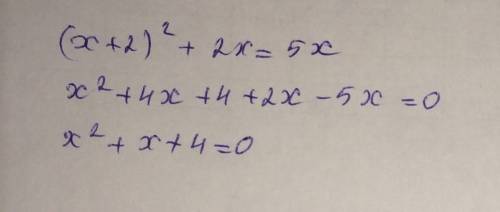 (x+2)² + 2x = 5x
x² + 4x + 4 + 2x - 5x = 0
x² + x + 4 = 0